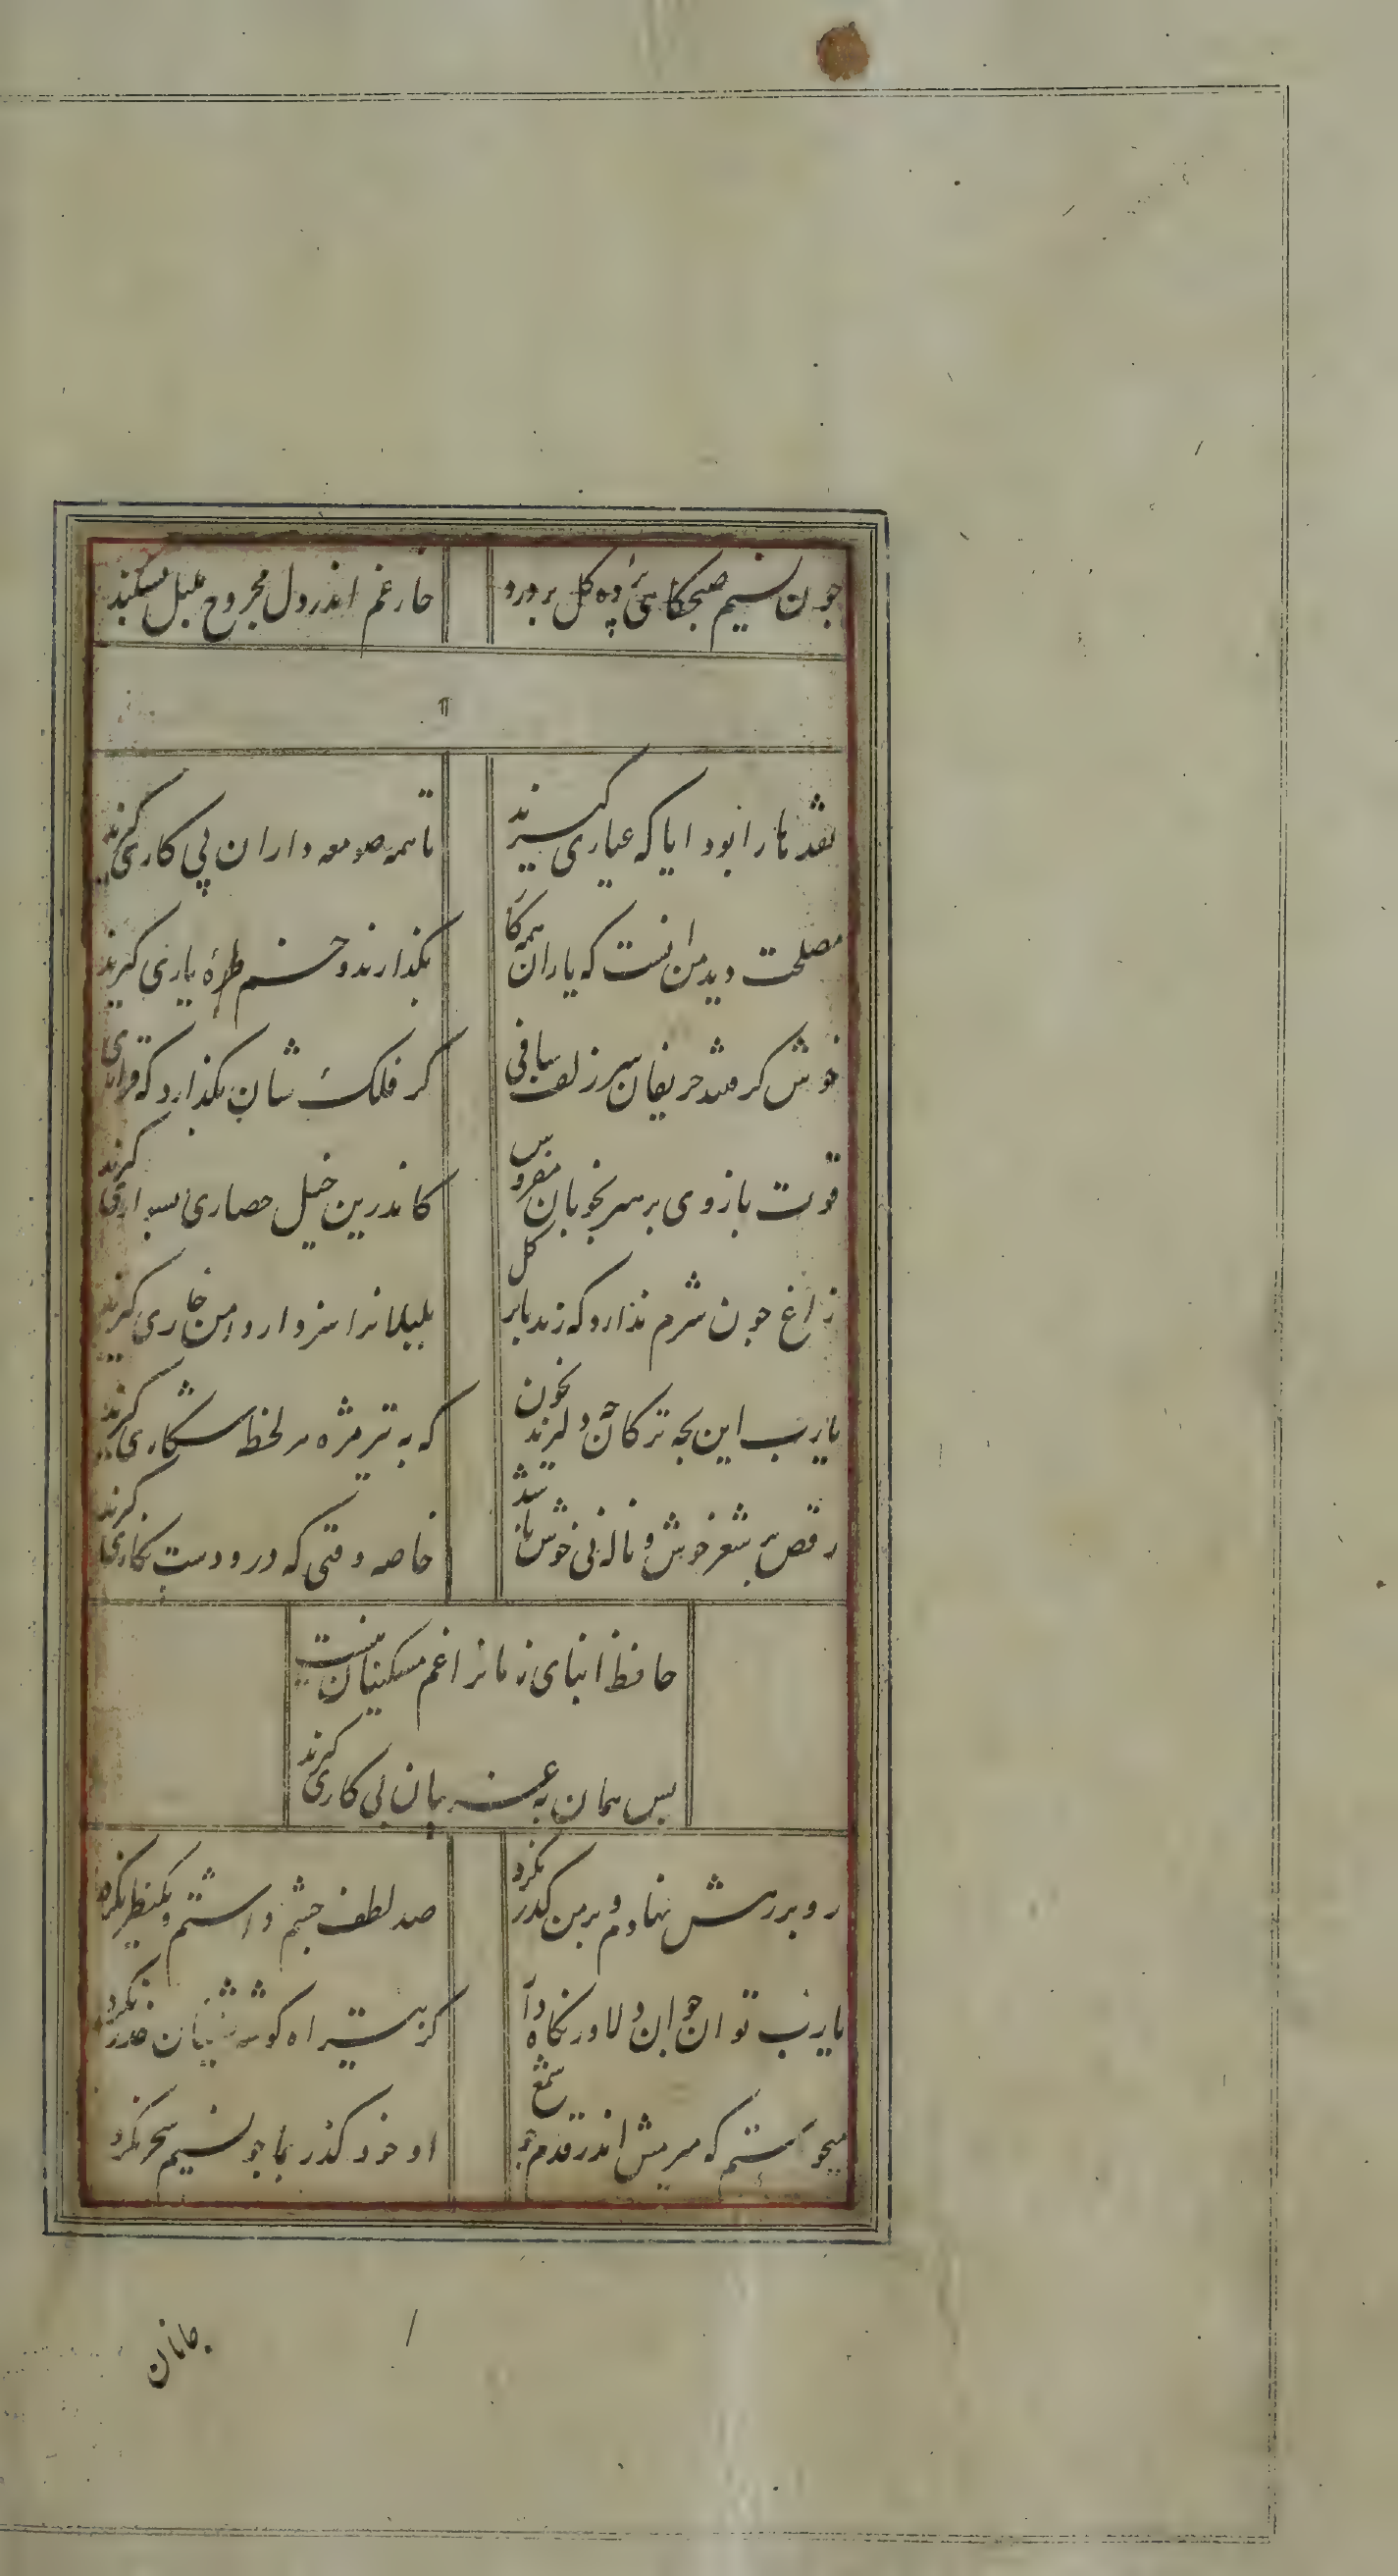 چون نسیم صبحگاهی پرده گل بردرد
خار غم اندر دل مجروح بلبل میکند
نقدها را بود ایا که عیاری گیرند
تا همه صومعه داران پی کاری گیرند
مصلحت دید من انست که یاران همه کار
بگذارند و خم طره یاری گیرند
خوش گرفتند حریفان سر زلف ساقی
گر فلک شان بگذارد که قراری گیرند
قوت بازوی پرهیز بخوبان مفروش
کاندرین خیل حصاری بسواری گیرند
زاغ چون شرم ندارد که زند پا بر گل
بلبلانرا سزد ار دامن خاری گیرند
یارب این بچه ترکان چه دلیرند بخون
که به تیر مژه هر لحظه شکاری گیرند
رقص بر شعر خوش و ناله نی خوش باشد
خاصه وقتی که درو دست نگاری گیرند
حافظ ابنای زمانرا غم مسکینان نیست
پس همان به ز میان بی کاری گیرند
رو بر رهش نهادم و بر من گذر نکرد
صد لطف چشم داشتم و یکنظر نکرد
یارب تو ان جوان دلاور نگاه دار
کز تیر اه گوشه نشینان حذر نکرد
میخواستم که میرمش اندر قدم چو شمع
او خود گذر بما چو نسیم سحر نکرد
جانان